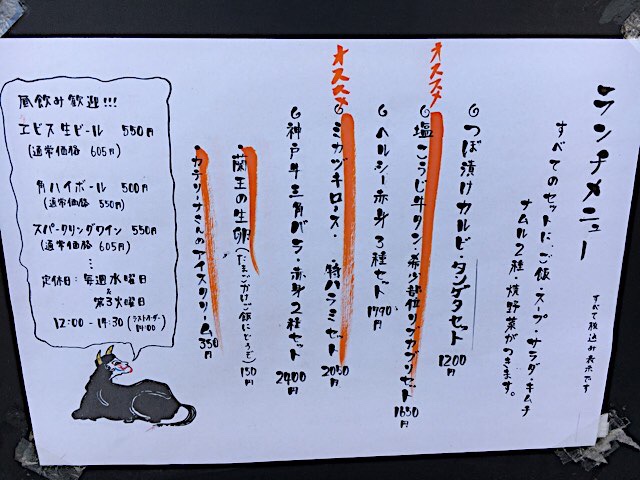 ランチメニュー
すべて税込み表示です
すべてのセットに、ご飯・スープ・サラダ・キムチ
ナムル2種・焼野菜がつきます。
つぼ漬けカルビ・タンダタセット 1200円
オススメ
塩こうじ牛タン・希少部位リブカブリセット 1650円
ヘルシー赤身3種セット 1790円
オススメ
ミカヅチロース・特ハラミセット 2050円
神戸牛三角バラ・赤身2種セット 2400円
蘭王の生卵(たまごかけご飯にどうぞ) 150円
カテリーナさんのアイスクリーム 350円
昼飲み歓迎!!!
ヱビス生ビール 550円
(通常価格 605円)
角ハイボール 500円
(通常価格 550円)
スパークリングワイン 550円
(通常価格 605円)
定休日:毎週水曜日
&
第3火曜日
12:00-14:30(ラストオーダー 14:00)